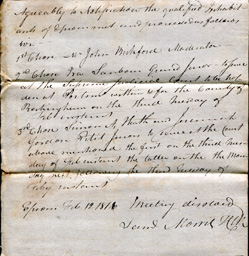 Agreeably to Notification the qualified Inhabit
ants of Epsom met and proceeded as follows
viz
1st Chose Mr John Bickford Moderator
2nd Chose Ira Sanborn Grand juror to serve
at the Supreme Court to be hol
den at Portsm within & for the County of
Rockingham on the third Tuesday of
Feb instant
3rd Chose Simon A Heath and Jeremiah
Gordon Petit jurors to serve at the court
above mentioned the first on the third Mon
day of Feb instant the latter on the Mon
day next following the third Tuesday of
Feby instant
Epsom Feb 10 Meeting dissolved
Morrill